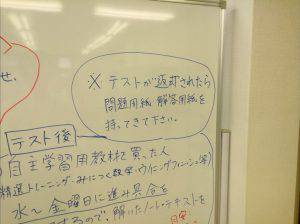 せ.
※ テストが返却されたら
問題用紙・解答用紙を
持ってきて下さい。
テスト後
自主学習用教材を買った人
精選トレーニング・みにつく数学・ウイニングフィニッシュ等)
水〜金曜日に進み具合を
するので、解いたノート・テキストを